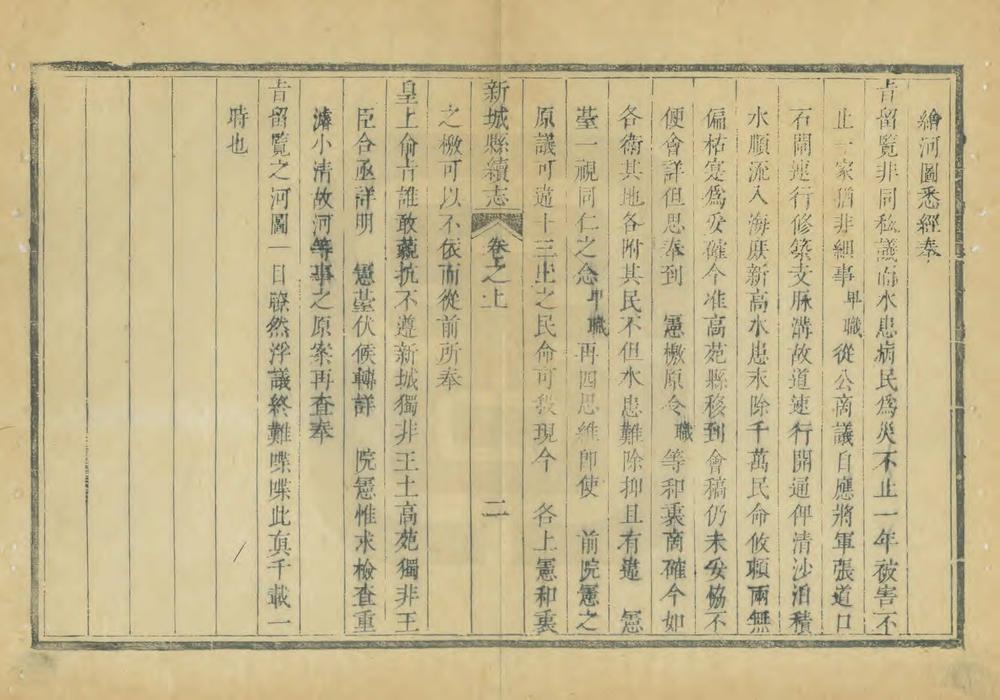 繪河圖悉經奉
旨留覽非同私議而水患病民為災不止一年被害不
止一家猶非細事卑職從公商議自應將軍張道口
石閘速行修築支脉溝故道速行開通俾清沙泊積
水順流入海庶新高水患永除千萬民命攸賴兩無
偏枯寔為妥確今准高苑縣移到會稿仍未妥協不
便會詳但思奉到　憲檄原令職等和衷商確今如
各衛其地各附其民不但水患難除抑且有違　憲
臺一視同仁之念卑職再四思維即使　前院憲之
原議可違十三庄之民命可殺現今　各上憲和衷
新城縣續志　卷之上　二
之檄可以不依而從前所奉
皇上俞旨誰敢藐抗不遵新城獨非王土高苑獨非王
臣合亟詳明　憲臺伏候轉詳　院憲惟求檢查重
濬小清故河等事之原案再查奉
旨留覽之河圖一目瞭然浮議終難喋喋此真千載一
時也